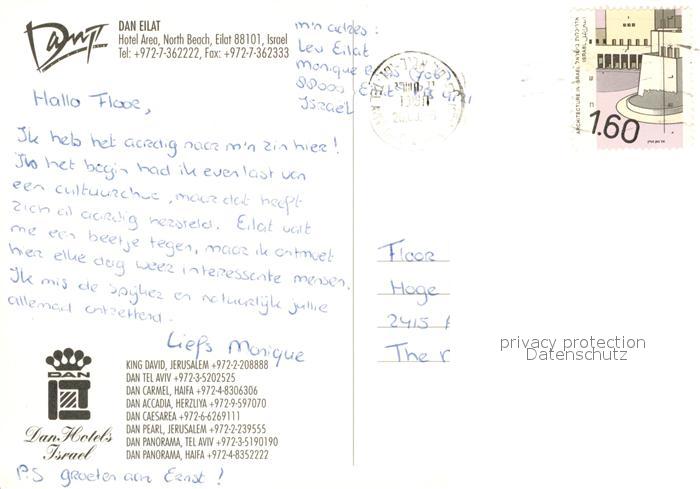 Dan
DAN EILAT
Hotel Area, North Beach, Eilat 88101, Israel
Tel: +972-7-362222, Fax: +972-7-362333
m'n adres:
Lev Eilat
Monique
88000 Eilat
Israel
ARCHITECTURE IN ISRAEL
ISRAEL
1.60
Hallo Floor,
Ik heb het aardig naar m'n zin hier!
In het begin had ik even last van
een cultuurshoc, maar dat heeft
zich al aardig hersteld. Eilat valt
me een beetje tegen, maar ik ontmoet
hier elke dag weer interessante mensen.
Ik mis de spijker en natuurlijk jullie
allemaal ontzettend.
Liefs Monique
Floor
Hoge
2415
The
privacy protection
Datenschutz
DAN
Dan Hotels
Israel
KING DAVID, JERUSALEM +972-2-208888
DAN TEL AVIV +972-3-5202525
DAN CARMEL, HAIFA +972-4-8306306
DAN ACCADIA, HERZLIYA +972-9-597070
DAN CAESAREA +972-6-6269111
DAN PEARL, JERUSALEM +972-2-239555
DAN PANORAMA, TEL AVIV +972-3-5190190
DAN PANORAMA, HAIFA +972-4-8352222
P.S groeten aan Ernst!